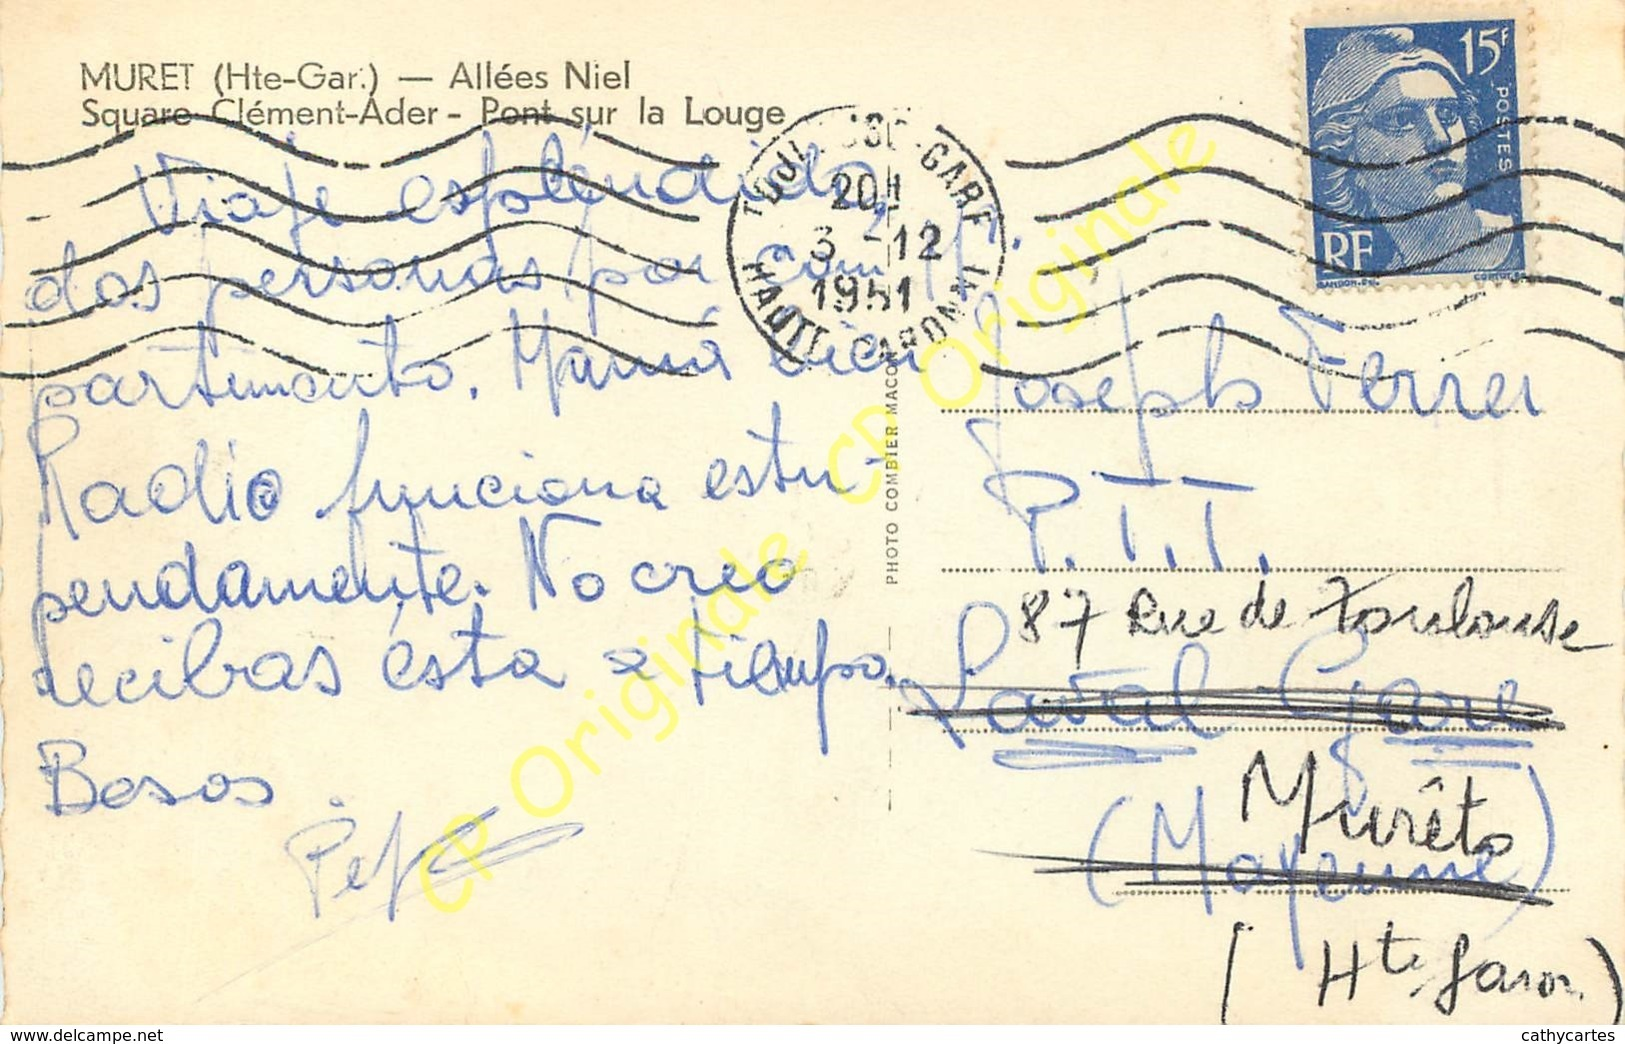 MURET (Hte-Gar.) — Allées Niel
Square Clément-Ader - Pont sur la Louge
Viaje espléndido,
dos personas por com-
partimento. Mamá bien
Radio funciona estu-
pendamente. No creo
recibas ésta a tiempo.
Besos
Pepe
PHOTO COMBIER MACO
TOULOUSE-GARE
20H
3 -12
1951
HAUTE GARONNE
15F
POSTES
RF
GANDON
Joseph Ferrer
P.T.T.
87 Rue de Toulouse
Laval Gare
Murêt
(Mayenne)
(Hte Garon.)
CP Originale CP Originale
https://www.delcampe.net
cathycartes